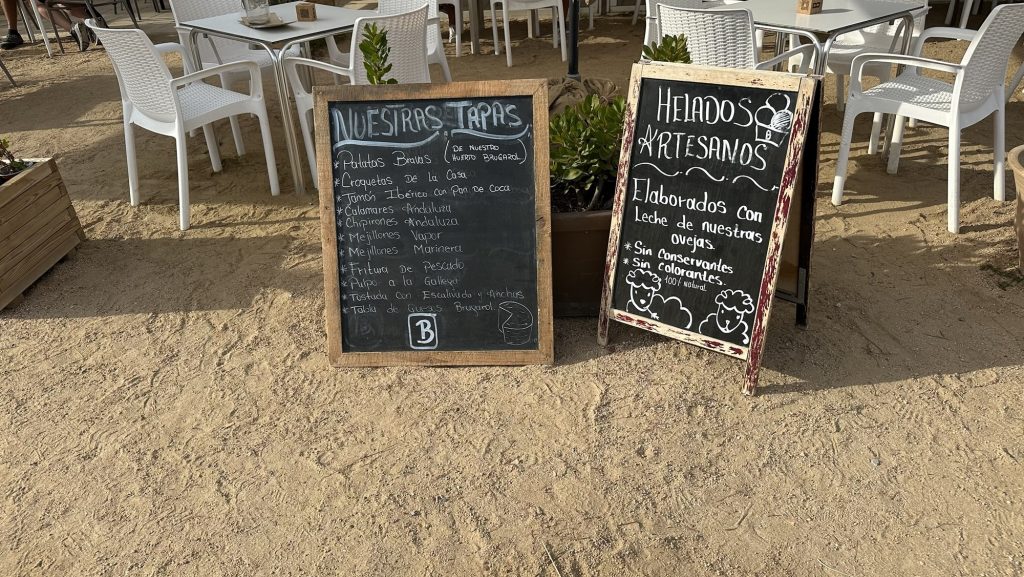 NUESTRAS TAPAS
* Patatas Bravas (DE NUESTRO HUERTO BRUGAROL)
* Croquetas De la Casa
* Jamón Ibérico con Pan De Coca
* Calamares Andaluza
* Chipirones Andaluza
* Mejillones Vapor
* Mejillones Marinera
* Fritura De Pescado
* Pulpo a la Gallega
* Tostada con Escalivada y Anchoas
* Tabla de Quesos Brugarol.
B
HELADOS
ARTESANOS
B
Elaborados con
Leche de nuestras
ovejas.
* Sin conservantes
* Sin colorantes.
100% natural.